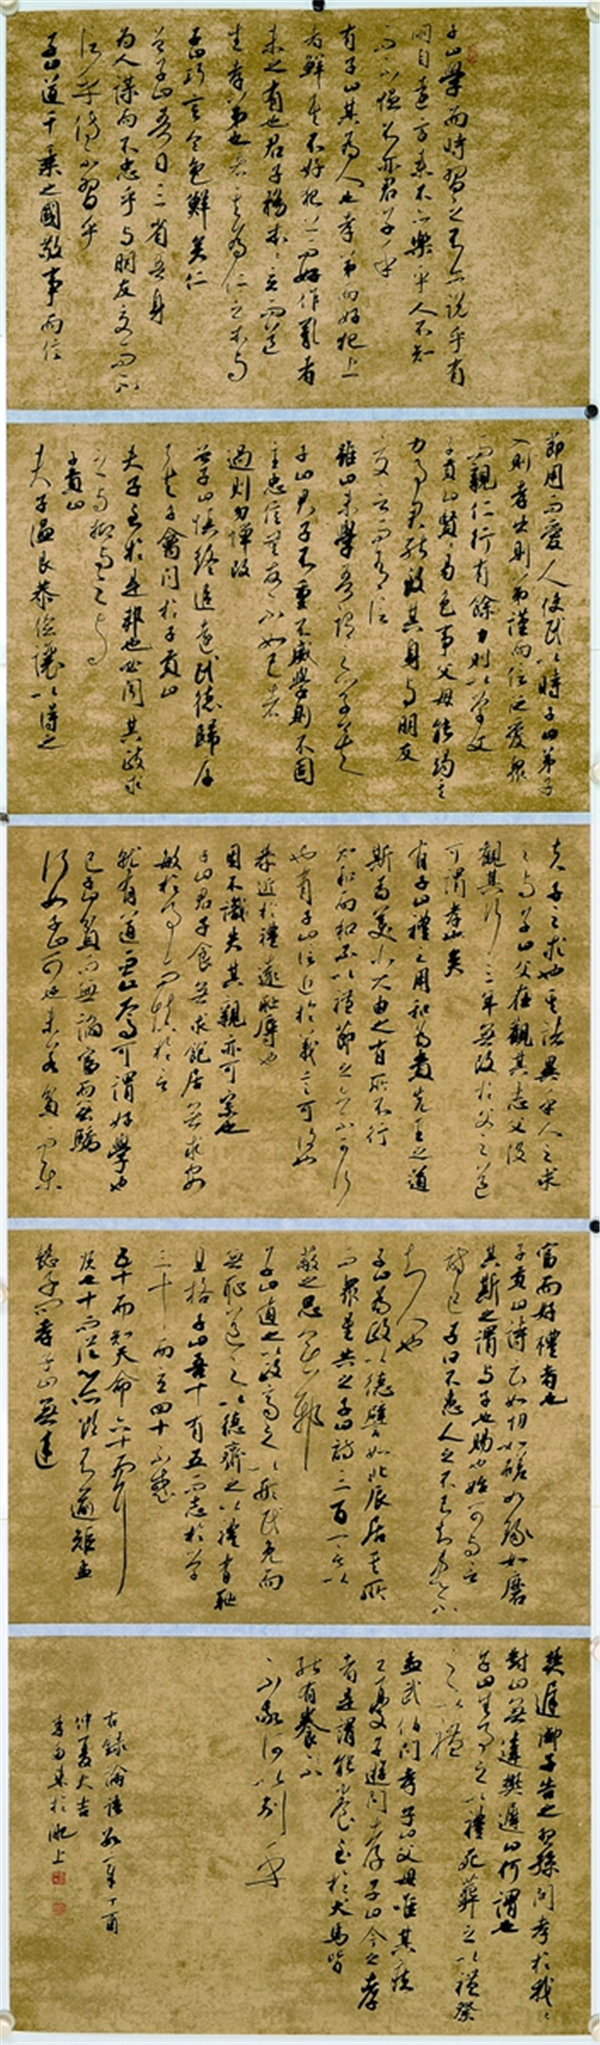 子曰學而時習之不亦說乎有
朋自遠方來不亦樂乎人不知
而不慍不亦君子乎
有子曰其為人也孝弟而好犯上
者鮮矣不好犯上而好作亂者
未之有也君子務本本立而道
生孝弟也者其為仁之本與
子曰巧言令色鮮矣仁
曾子曰吾日三省吾身
為人謀而不忠乎與朋友交而不
信乎傳不習乎
子曰道千乘之國敬事而信
節用而愛人使民以時子曰弟子
入則孝出則弟謹而信汎愛眾
而親仁行有餘力則以學文
子夏曰賢賢易色事父母能竭其
力事君能致其身與朋友
交言而有信
雖曰未學吾謂之學矣
子曰君子不重不威學則不固
主忠信無友不如己者
過則勿憚改
曾子曰慎終追遠民德歸厚
矣子禽問於子貢曰
夫子至於是邦也必聞其政求
之與抑與之與
子貢曰
夫子溫良恭儉讓以得之
夫子之求也其諸異乎人之求
之與子曰父在觀其志父沒
觀其行三年無改於父之道
可謂孝矣
有子曰禮之用和為貴先王之道
斯為美小大由之有所不行
知和而和不以禮節之亦不可行
也有子曰信近於義言可復也
恭近於禮遠恥辱也
因不識失其親亦可宗也
子曰君子食無求飽居無求安
敏於事而慎於言
就有道而正焉可謂好學也
已子貢曰貧而無諂富而無驕
何如子曰可也未若貧而樂
富而好禮者也
子貢曰詩云如切如磋如琢如磨
其斯之謂與子曰賜也始可與言
詩已子曰不患人之不己知患不
知人也
子曰為政以德譬如北辰居其所
而眾星共之子曰詩三百一言以
蔽之思無邪
子曰道之以政齊之以刑民免而
無恥道之以德齊之以禮有恥
且格子曰吾十有五而志於學
三十而立四十不惑
五十而知天命六十而耳順
七十而從心所欲不逾矩孟
懿子問孝子曰無違
樊遲御子告之曰孟孫問孝於我我
對曰無違樊遲曰何謂也
子曰生事之以禮死葬之以禮祭
之以禮
孟武伯問孝子曰父母唯其疾
之憂子游問孝子曰今之孝
者是謂能養至於犬馬皆
能有養不
不敬何以別乎
右錄論語 丁酉
仲夏大吉
於 上